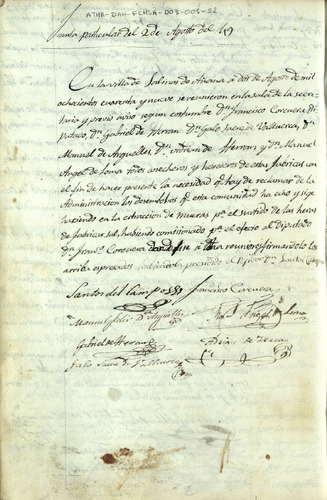 ATHA-DAH-FCHSA-003-003-22
Junta particular del 2 de Agosto del 49
En la villa de Salinas de Añana à dos de Agosto de mil
ochocientos cuarenta y nueve se reunieron en la sala de la secre-
taria y previo aviso segun costumbre Dn. Francisco Corcuera Di-
putado, Dn. Gabriel de Herran Dn. Galo Saenz de Valluerca, Dn.
Manuel de Arguelles, Dn. de Herran y Dn. Manuel
Angel de Loma todos cosecheros y herederos de estas fabricas con
el fin de hacer presente la necesidad que hay de reclamar de la
Administracion los desembolsos que esta comunidad ha echo y sigue
haciendo en la extraccion de mueras pa. el surtido de las heras
de fabricar sal, habiendo comisionado pa. el efecto al Diputado
Dn. Franco. Corcuera à reunirse firmandolo los
arriba expresados presidido el Dn. Santos
Santos del Campo Francisco Corcuera
Manuel Dn. Arguelles Manl. Angel de Loma
Gabriel de Herran de Herran
Galo Saenz de Valluerca